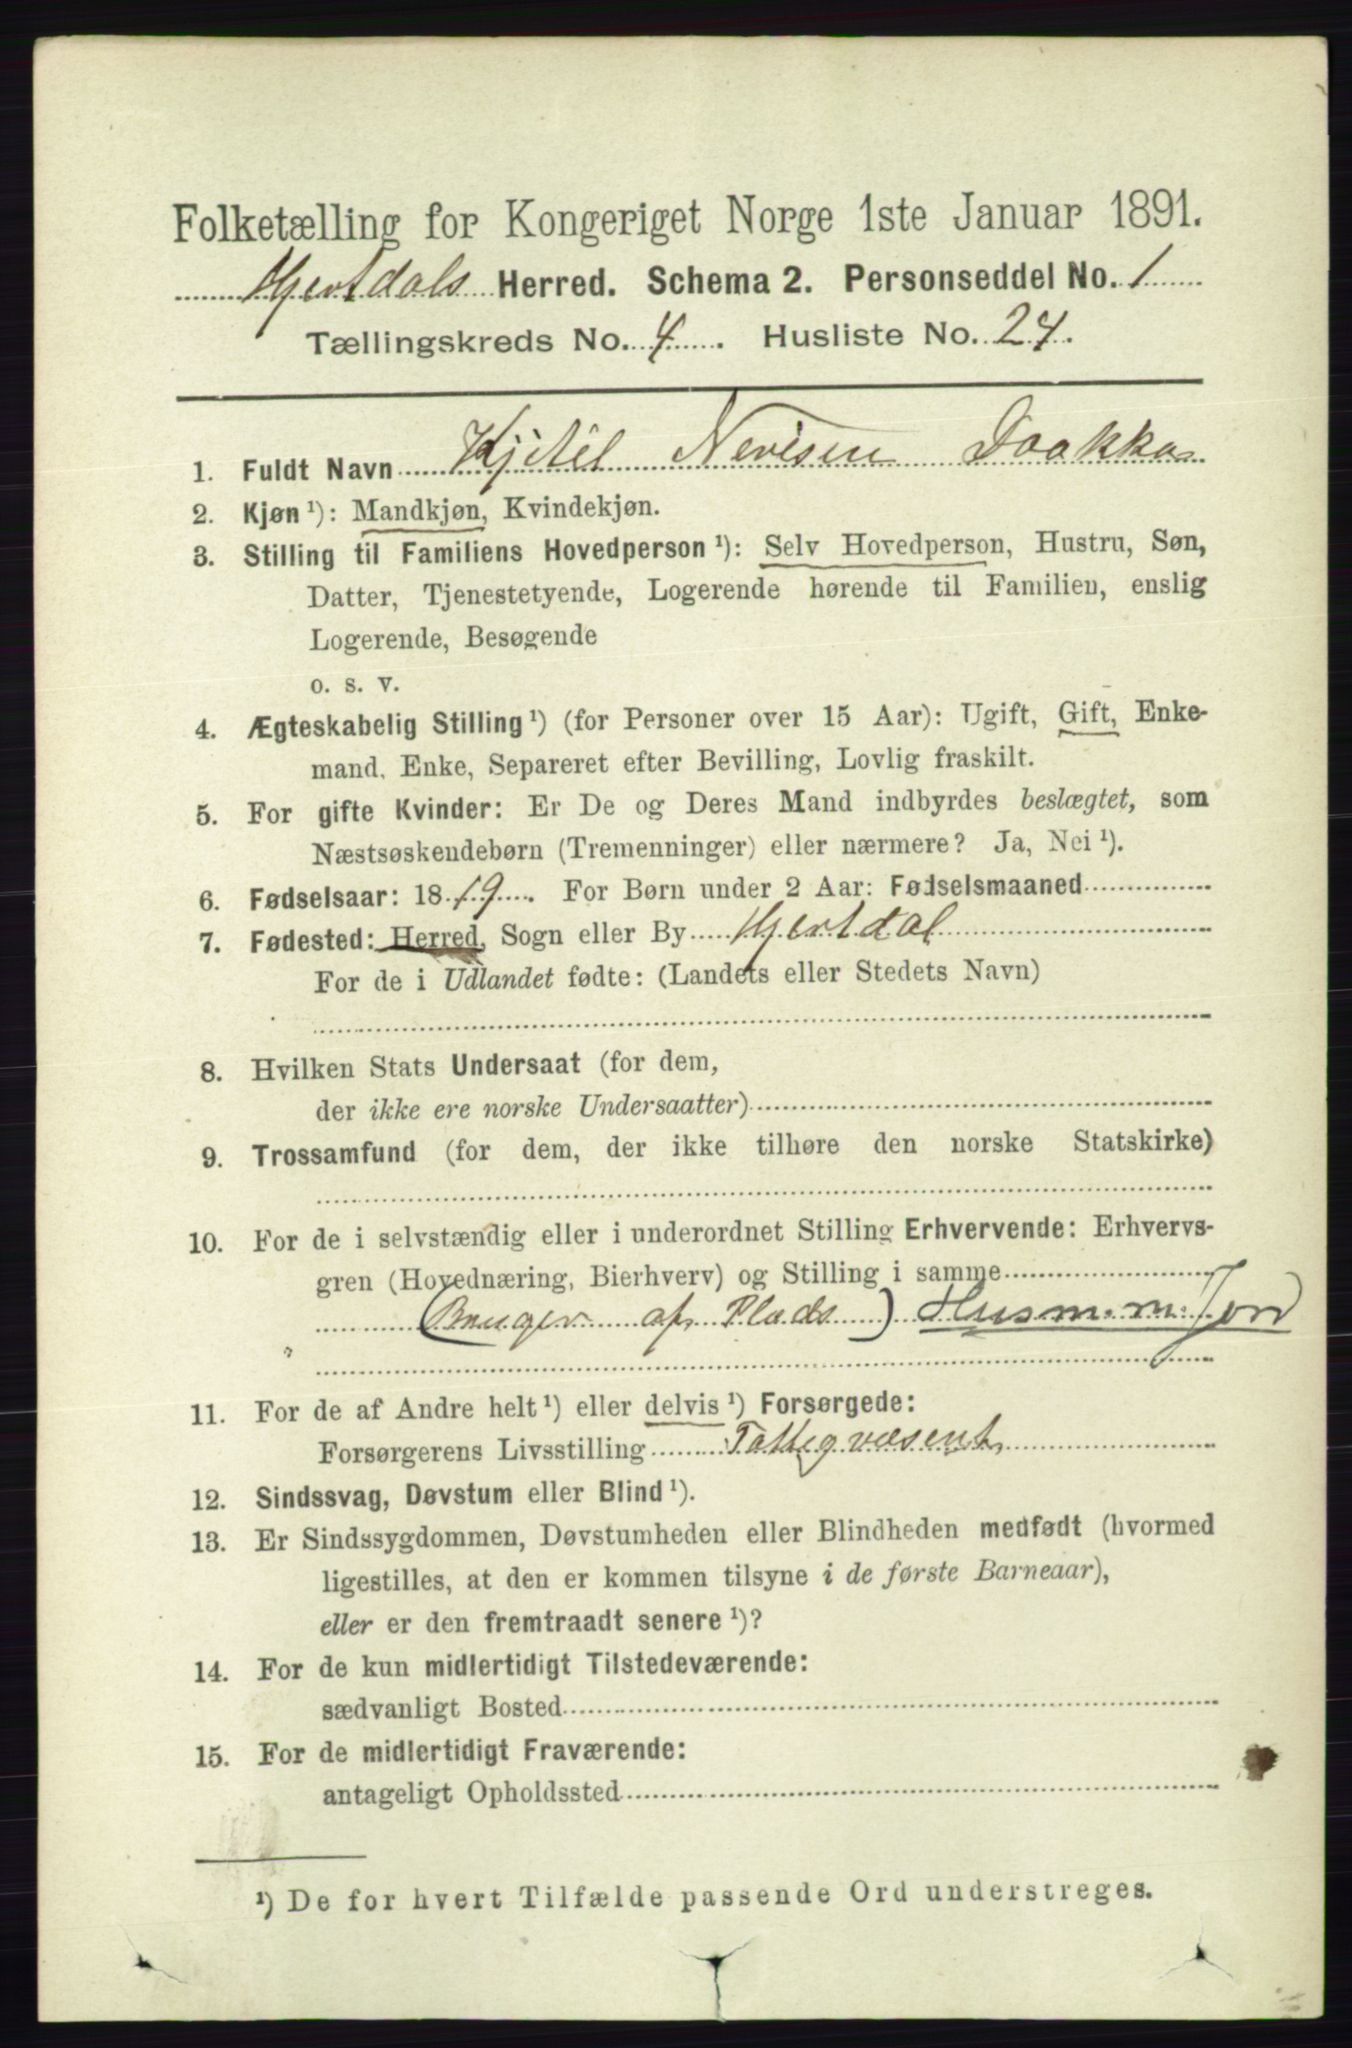 Folketælling for Kongeriget Norge 1ste Januar 1891.
Hjertdals Herred. Schema 2. Personseddel No. 1
Tællingskreds No. 4. Husliste No. 24.
1. Fuldt Navn Kjitil Nerisen Daakka
2. Kjøn ¹): Mandkjøn, Kvindekjøn.
3. Stilling til Familiens Hovedperson ¹): Selv Hovedperson, Hustru, Søn,
Datter, Tjenestetyende, Logerende hørende til Familien, enslig
Logerende, Besøgende
o. s. v.
4. Ægteskabelig Stilling ¹) (for Personer over 15 Aar): Ugift, Gift, Enke-
mand, Enke, Separeret efter Bevilling, Lovlig fraskilt.
5. For gifte Kvinder: Er De og Deres Mand indbyrdes beslægtet, som
Næstsøskendebørn (Tremenninger) eller nærmere? Ja, Nei ¹).
6. Fødselsaar: 1819. For Børn under 2 Aar: Fødselsmaaned
7. Fødested: Herred, Sogn eller By Hjertdal
For de i Udlandet fødte: (Landets eller Stedets Navn)
8. Hvilken Stats Undersaat (for dem,
der ikke ere norske Undersaatter)
9. Trossamfund (for dem, der ikke tilhøre den norske Statskirke)
10. For de i selvstændig eller i underordnet Stilling Erhvervende: Erhvervs-
gren (Hovednæring, Bierhverv) og Stilling i samme
(Bruger af Plads) Husm. m. Jord
11. For de af Andre helt ¹) eller delvis ¹) Forsørgede:
Forsørgerens Livsstilling Fattigvæsent
12. Sindssvag, Døvstum eller Blind ¹).
13. Er Sindssygdommen, Døvstumheden eller Blindheden medfødt (hvormed
ligestilles, at den er kommen tilsyne i de første Barneaar),
eller er den fremtraadt senere ¹)?
14. For de kun midlertidigt Tilstedeværende:
sædvanligt Bosted
15. For de midlertidigt Fraværende:
antageligt Opholdssted
¹) De for hvert Tilfælde passende Ord understreges.